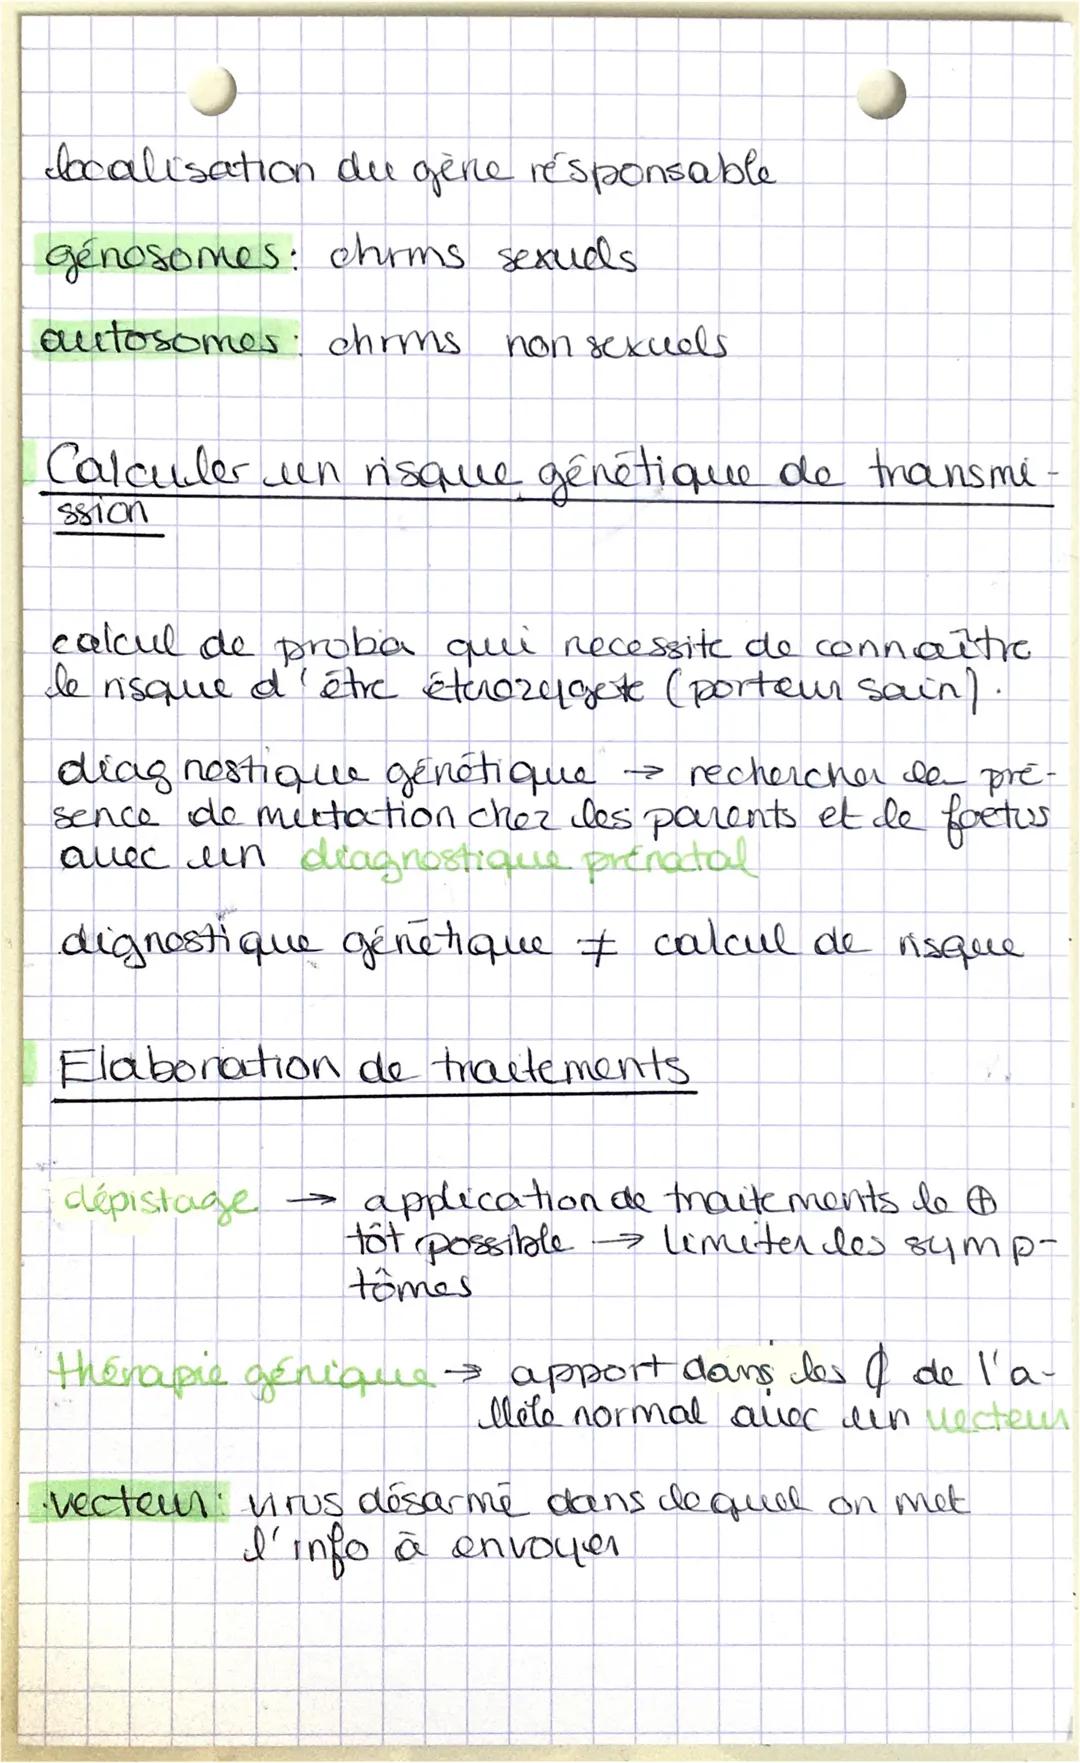 localisation du gène résponsable
génosomes: chrms sexuels
autosomes: chrms non sexuels
Calculer un risque génétique de transmi-
ssion
calcul de proba qui necessite de connaître
le risque d'être éterozygote (porteur sain).
diagnostique génétique → rechercher la pré-
sence de mutation chez les parents et le foetus
avec un diagnostique prénatal
dignostique génétique ≠ calcul de risque
Elaboration de traitements
dépistage → application de traitements le ⊕
tôt possible → limiter les symp-
tômes
thérapie génique → apport dans les ₵ de l'a-
llèle normal avec un vecteur
vecteur: virus désarmé dans lequel on met
l'info à envoyer